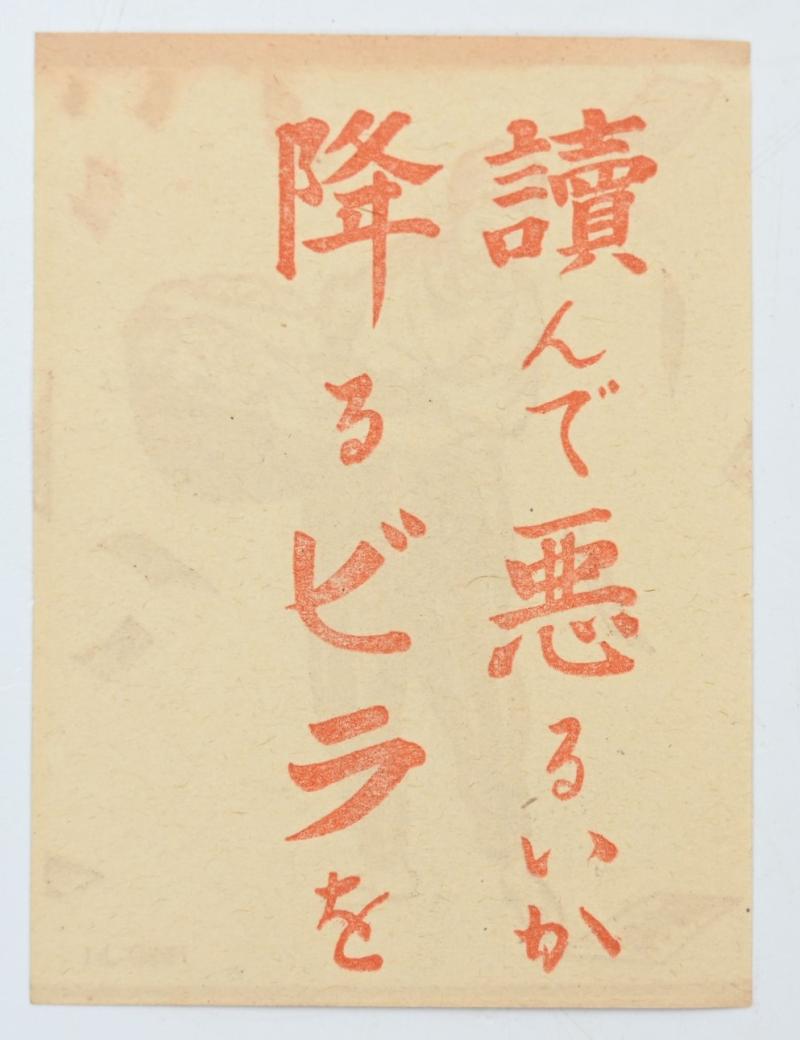 讀んで悪るいか
降るビラを